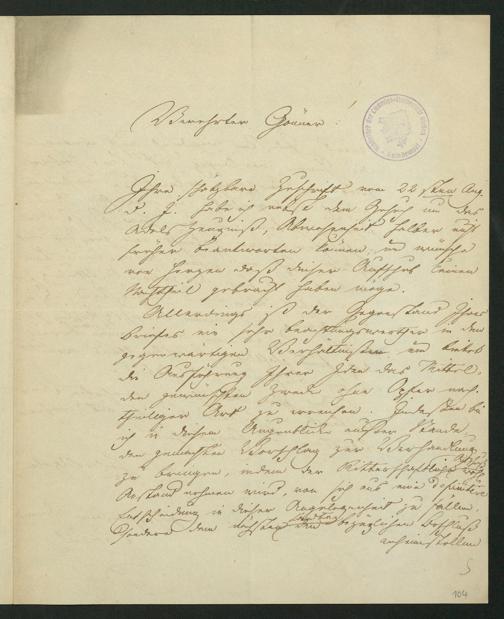 Verehrter Gönner!
Ihre schätzbare Zuschrift vom 22sten Aug.
d. J. habe ich nebst dem Gesuch um das
Adels Zeugniß, Abwesenheit halber nicht
früher beantworten können, und wünsche
von Herzen daß dieser Aufschub keinen
Nachtheil gebracht haben möge.
Allerdings ist der Gegenstand Ihres
Briefes ein sehr beachtungswerther in den
gegenwärtigen Verhältnissen und bietet
die Ausführung Ihrer Idee das Mittel,
den gewünschten Zweck ohne Opfer nach-
theiliger Art zu erreichen. Indessen bin
ich in diesem Augenblicke außer Stande,
den gemachten Vorschlag zur Verhandlung
zu bringen, indem der Ritterschaftliche
Anstand nehmen wird, von sich aus eine definitive
Entscheidung in dieser Angelegenheit zu fällen,
sondern dem nächsten Landtag den bezüglichen Beschluß
anheimstellen
104